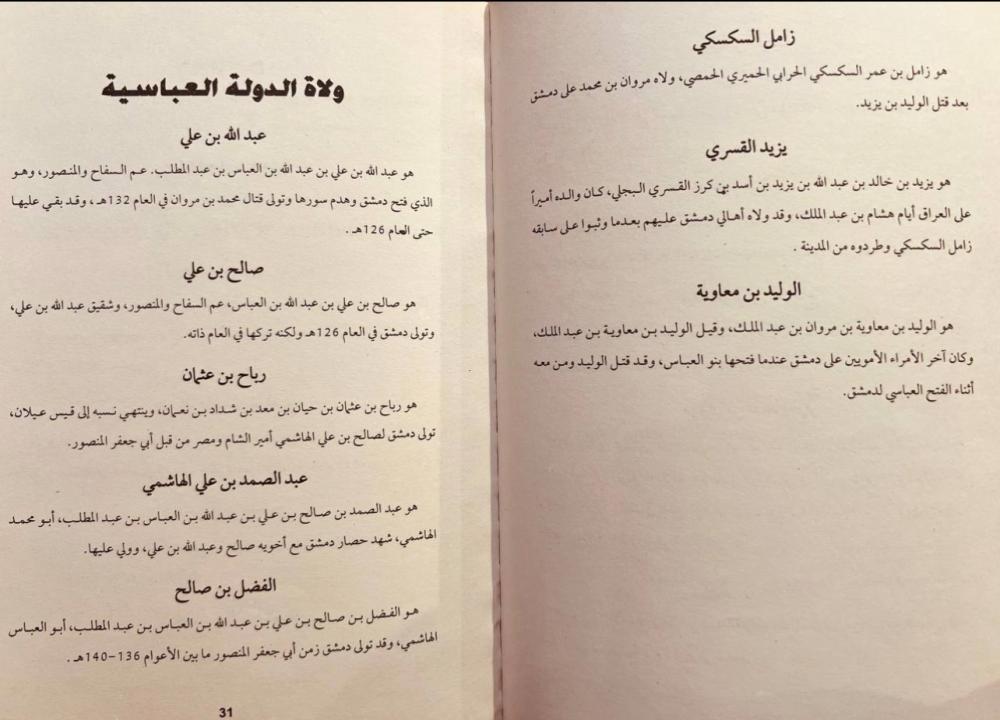 زامل السكسكي
هو زامل بن عمر السكسكي الحرابي الحميري الحمصي، ولاه مروان بن محمد على دمشق
بعد قتل الوليد بن يزيد.
يزيد القسري
هو يزيد بن خالد بن عبد الله بن يزيد بن أسد بن كرز القسري البجلي، كان والده أميراً
على العراق أيام هشام بن عبد الملك، وقد ولاه أهالي دمشق عليهم بعدما وثبوا على سابقه
زامل السكسكي وطردوه من المدينة .
الوليد بن معاوية
هو الوليد بن معاوية بن مروان بن عبد الملك، وقيل الوليد بن معاوية بن عبد الملك،
وكان آخر الأمراء الأمويين على دمشق عندما فتحها بنو العباس، وقد قتل الوليد ومن معه
أثناء الفتح العباسي لدمشق.
ولاة الدولة العباسية
عبد الله بن علي
هو عبد الله بن علي بن عبد الله بن العباس بن عبد المطلب. عم السفاح والمنصور، وهو
الذي فتح دمشق وهدم سورها وتولى قتال محمد بن مروان في العام 132هـ، وقد بقي عليها
حتى العام 126هـ .
صالح بن علي
هو صالح بن علي بن عبد الله بن العباس، عم السفاح والمنصور، وشقيق عبد الله بن علي،
وتولى دمشق في العام 126هـ ولكنه تركها في العام ذاته.
رباح بن عثمان
هو رباح بن عثمان بن حيان بن معد بن شداد بن نعمان، وينتهي نسبه إلى قيس عيلان،
تولى دمشق لصالح بن علي الهاشمي أمير الشام ومصر من قبل أبي جعفر المنصور.
عبد الصمد بن علي الهاشمي
هو عبد الصمد بن صالح بن علي بن عبد الله بن العباس بن عبد المطلب، أبو محمد
الهاشمي، شهد حصار دمشق مع أخويه صالح وعبد الله بن علي، وولي عليها.
الفضل بن صالح
هو الفضل بن صالح بن علي بن عبد الله بن العباس بن عبد المطلب، أبو العباس
الهاشمي، وقد تولى دمشق زمن أبي جعفر المنصور ما بين الأعوام 136–140هـ .
31